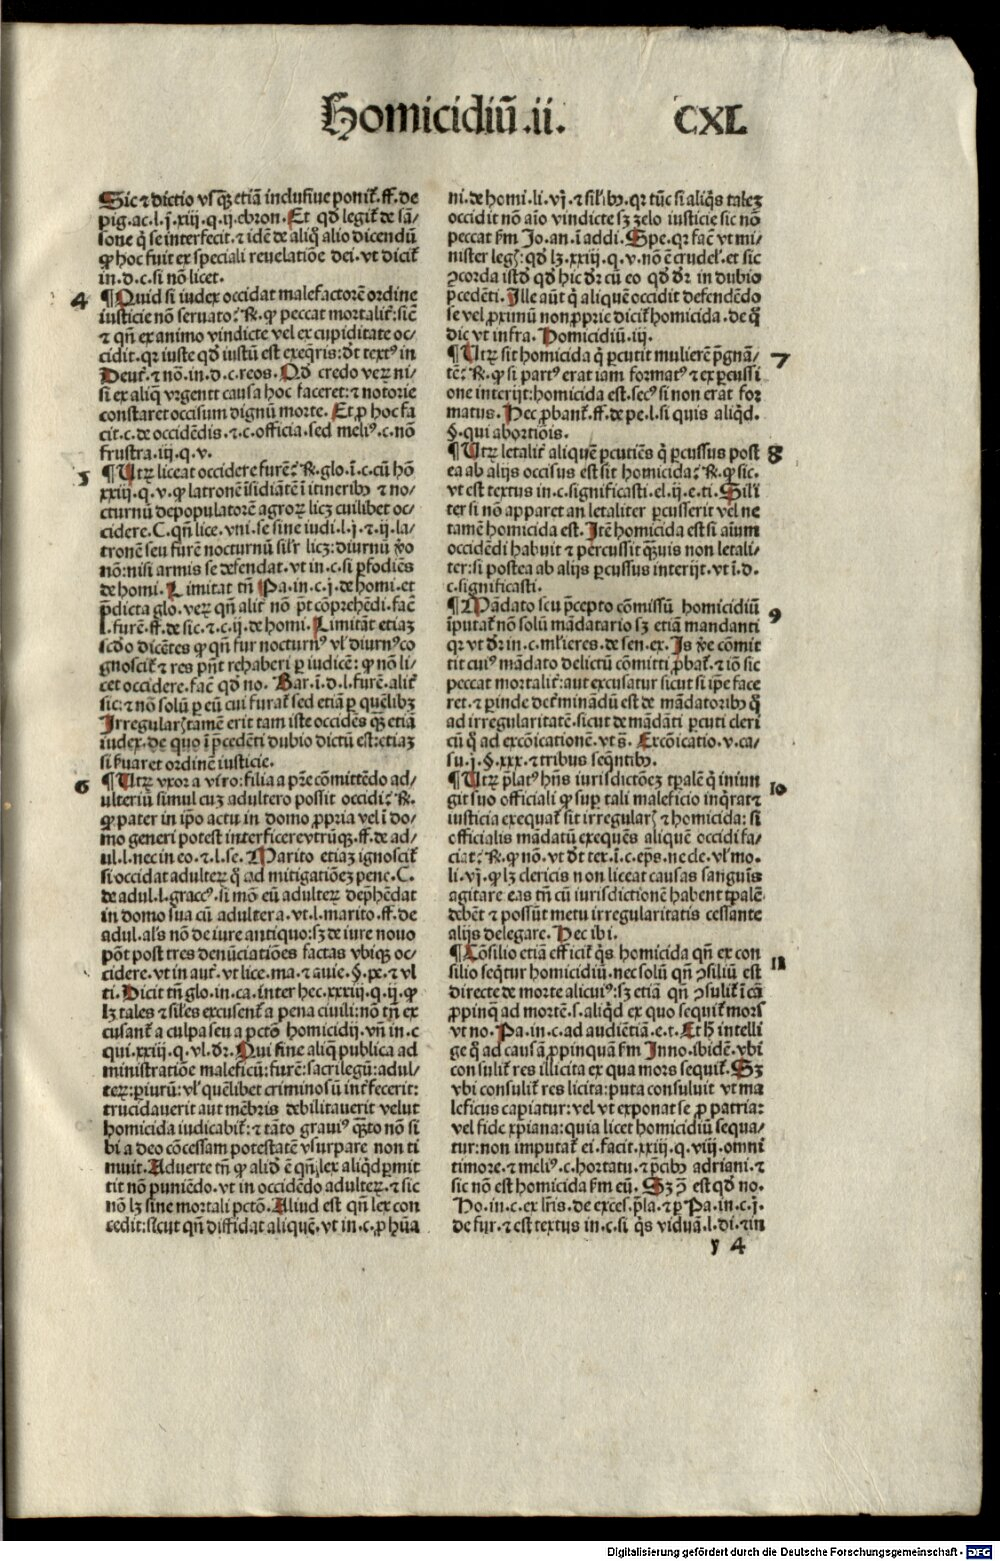 Homicidiū .ii. CXL
Sic ⁊ dictio vsq̄ȝ etiā inclusiue poniť. ff. de
pig. ac. l. j. xiij. q. ij. ebron. Et qđ legiť de sā/
sone q̇ se interfecit. ⁊ idē de aliq̇ alio dicendū
ꝙ hoc fuit ex speciali reuelatiōe dei. vt diciť
in. d. c. si nō licet.
4 ¶ Quid si iudex occidat malefactorē ordine
iusticie nō seruato: ℟. ꝙ peccat mortaliť: sicē
⁊ qn̄ ex animo vindicte vel ex cupiditate oc/
cidit. qꝛ iuste qđ iustū est exeq̄ris: vt textꝰ in
Deuť. ⁊ nō. in. d. c. reos. Qđ credo veꝝ ni/
si ex aliq̄ vrgente causa hoc faceret: ⁊ notorie
constaret occisum dignū morte. Et ꝓ hoc fa
cit. c. de occidēdis. ⁊ c. officia. sed meliꝰ. c. nō
frustra. iij. q. v.
5 ¶ Utꝝ liceat occidere furē: ℟. glo. ī. c. cū hō
xxiij. q. v. ꝙ latronē īsidiātē ī itineribꝰ ⁊ no/
cturnū depopulatorē agroꝝ licȝ cuilibet oc/
cidere. C. qn̄ lice. vni. se sine iudi. l. j. ⁊ ij. la/
tronē seu furē nocturnū siľr licȝ: diurnū ꝟo
nō: nisi armis se defendat. vt in. c. si ꝑfodiēs
de homi. Limitat tn̄ Pa. in. c. j. de homi. et
p̄dicta glo. veꝝ qn̄ aliť nō p̄t cōprehēdi. facē
l. furē. ff. de sic. ⁊ c. ij. de homi. Limitāt etiaȝ
scđo dicētes ꝙ qn̄ fur nocturnꝰ vľ diurnꝰ co
gnosciť ⁊ res pn̄t rehaberi ꝑ iudicē: ꝙ nō li/
cet occidere. facē qđ no. Bar. ī. d. l. furē. aliť
sic: ⁊ nō solū ꝑ eū cui furať sed etiā ꝑ quēlibȝ
Irregularꝭ tamē erit tam iste occidēs q̄ȝ etiā
iudex. de quo ī p̄cedēti dubio dictū est: etiaȝ
si ẜuaret ordinē iusticie.
6 ¶ Utꝝ vxor a viro: filia a pr̄e cōmittēdo ad/
ulteriū simul cuȝ adultero possit occidi: ℟.
ꝙ pater in ip̄o actu in domo ꝓpria vel ī do/
mo generi potest interficere vtrūqȝ. ff. de ad/
ul. l. nec in eo. ⁊ l. se. Marito etiaȝ ignosciť
si occidat adulteꝝ q̇ ad mitigatiōeȝ pene. C.
de adul. l. graccꝰ. si mō eū adulteꝝ dep̄hēdat
in domo sua cū adultera. vt. l. marito. ff. de
adul. al's nō de iure antiquo: sȝ de iure nouo
pōt post tres denūciatiōes factas vbiqȝ oc/
cidere. vt in auť. vt lice. ma. ⁊ auie. §. pe. ⁊ vl
ti. Dicit tn̄ glo. in. ca. inter hec. xxxiij. q. ij. ꝙ
lȝ tales ⁊ siľes excusenť a pena ciuili: nō tn̄ ex
cusanť a culpa seu a pctō homicidij. vn̄ in. c
qui. xxiij. q. vl. dr̄. Qui sine aliq̄ publica ad
ministratiōe maleficū: furē: sacrilegū: adul/
teꝝ: piurū: vľ quēlibet criminosū inťfecerit:
trucidauerit aut mēbris debilitauerit velut
homicida iudicabiť: ⁊ tāto grauiꝰ q̄ȝto nō si
bi a deo cōcessam potestatē vsurpare non ti
muit. Aduerte tn̄ ꝙ aliđ ē qn̄ lex aliq̇d ꝑmit
tit nō puniēdo. vt in occidēdo adulteꝝ. ⁊ sic
nō lȝ sine mortali pctō. Aliud est qn̄ lex con
cedit: sicut qn̄ diffidat aliquē. vt in. c. ꝓ hūa
ni. de homi. li. vj. ⁊ siľibꝰ. qꝛ tūc si aliq̇s taleȝ
occidit nō aīo vindicte sȝ zelo iusticie sic nō
peccat ẜm Jo. an. ī addi. Spe. qꝛ facē vt mi/
nister legꝭ: qđ lȝ. xxiij. q. v. nō ē crudeľ. et sic
ꝯcorda istđ qđ hic dr̄ cū eo qđ dr̄ in dubio
p̄cedēti. Ille aūt q̇ aliquē occidit defendēdo
se vel ꝓximū non ꝓprie diciť homicida. de q̇
dic vt infra. Homicidiū. iij.
¶ Utꝝ sit homicida q̇ ꝑcutit mulierē p̄gnā/ 7
tē: ℟. ꝙ si partꝰ erat iam formatꝰ ⁊ ex ꝑcussi
one interijt: homicida est. secꝰ si non erat for
matus. Hec ꝓbanť. ff. de pe. l. si quis aliq̇d.
§. qui abortiōis.
¶ Utꝝ letaliť aliquē ꝑcutiēs q̇ ꝑcussus post 8
ea ab alijs occisus est sit homicida: ℟. ꝙ sic.
vt est textus in. c. significasti. el. ij. e. ti. Sili
ter si nō apparet an letaliter ꝑcusserit vel ne
tamē homicida est. Itē homicida est si aīum
occidēdi habuit ⁊ percussit q̄ȝuis non letali/
ter: si postea ab alijs ꝑcussus interijt. vt ī. d.
c. significasti.
¶ Mādato seu p̄cepto cōmissū homicidiū 9
īputať nō solū mādatario sȝ etiā mandanti
qꝛ vt dr̄ in. c. mľieres. de sen. ex. Is ꝟe cōmit
tit cuiꝰ mādato delictū cōmitti ꝓbať. ⁊ iō sic
peccat mortaliť: aut excusatur sicut si ip̄e face
ret. ⁊ perinde deťminādū est de mādatoribꝰ q̇
ad irregularitatē. sicut de mādāti ꝑcuti cleri
cū q̇ ad excōicationē. vt s̄. Excōicatio. v. ca/
su. j. §. xxx. ⁊ tribus seq̄ntibꝰ.
¶ Utꝝ p̄latꝰ hn̄s iurisdictōeȝ tꝑalē q̇ iniun 10
git suo officiali ꝙ suꝑ tali maleficio inq̇rat ⁊
iusticia exequať sit irregularꝭ ⁊ homicida: si
officialis mādatū exequēs aliquē occidi fa/
ciat: ℟. ꝙ nō. vt dr̄ tex. ī. c. ep̄s. ne cle. vľ mo.
li. vj. ꝙ lȝ clericis non liceat causas sanguīs
agitare eas tn̄ cū iurisdictionē habent tꝑalē
debēt ⁊ possūt metu irregularitatis cessante
alijs delegare. Hec ibi.
¶ Cōsilio etiā efficiť q̇s homicida qn̄ ex con 11
silio seq̇tur homicidiū. nec solū qn̄ ꝯsiliū est
directe de morte alicuiꝰ: sȝ etiā qn̄ ꝯsuliť ī cā
ꝓpinq̄ ad mortē. s. aliq̇d ex quo sequiť mors
vt no. Pa. in. c. ad audiētiā. e. t. Et h̄ intelli
ge q̇ ad causā ꝓpinquā ẜm Inno. ibidē. vbi
consuliť res illicita ex qua mors sequiť. Sȝ
vbi consuliť res licita: puta consuluit vt ma
leficus capiatur: vel vt exponat se ꝓ patria:
vel fide xp̄iana: quia licet homicidiū sequa/
tur: non imputať ei. facit. xxiij. q. viij. omni
timore. ⁊ meliꝰ. c. hortatu. ⁊ p̄cibꝰ adriani. ⁊
sic nō est homicida ẜm eū. Sȝ ꝯ̄ est qđ no.
Ho. in. c. ex lr̄is. de exces. p̄la. ⁊ ꝑ Pa. in. c. j.
de fur. ⁊ est textus in. c. si q̇s viduā. l. di. ⁊ in
y 4
Digitalisierung gefördert durch die Deutsche Forschungsgemeinschaft - DFG